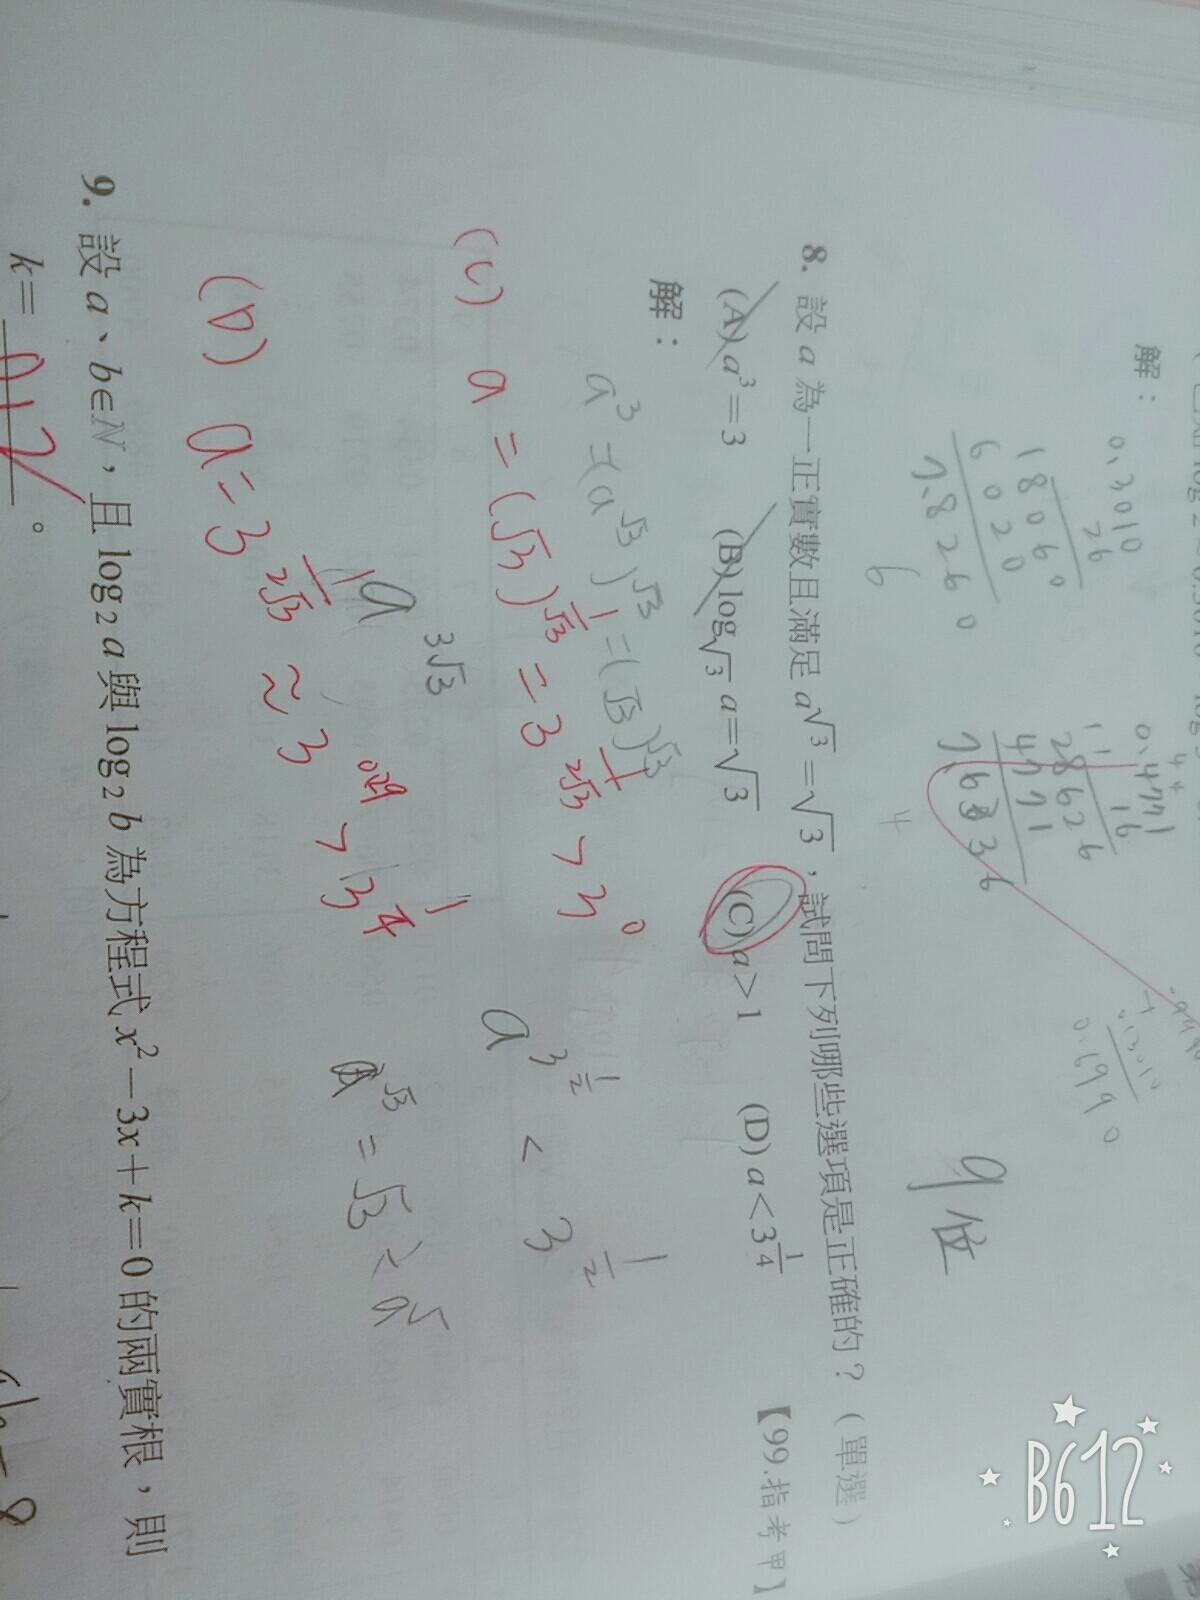 解：
0.3010
26
1 8 0 6 0
6 0 2 0
7.8 2 6 0
6
0.4771
16
28626
4771
7.6336
4
0.6990
9位
8. 設 a 為一正實數且滿足 a^√3 = √3，試問下列哪些選項是正確的？（單選）
【99.指考甲】
(A) a³ = 3 (B) log_√3 a = √3 (C) a > 1 (D) a < 3^(1/4)
解：
a³ = (a^√3)^√3 = (√3)^√3
(C) a = (√3)^(1/√3) = 3^(1/(2√3)) > 3⁰
a^(3√3)
a^(3^(1/2)) < 3^(1/2)
(D) a = 3^(1/(2√3)) ≈ 3^0.29 > 3^(1/4)
a^√3 = √3 >
9. 設 a、b∈N，且 log₂ a 與 log₂ b 為方程式 x² − 3x + k = 0 的兩實根，則
k = 。
B612